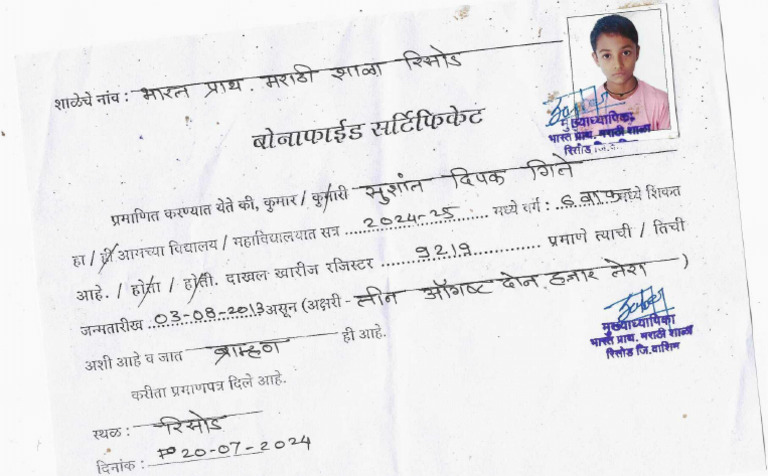 शाळेचे नांव : भारत प्राथ. मराठी शाळा रिसोड
बोनाफाईड सर्टिफिकेट
मुख्याध्यापिका
भारत प्राथ. मराठी शाळा
रिसोड जि.
प्रमाणित करण्यात येते की, कुमार / कुमारी सुशांत दिपक गिते
हा / ही आमच्या विद्यालय / महाविद्यालयात सत्र 2024-25 मध्ये वर्ग : मध्ये शिकत
आहे. / होता / होती. दाखल खारीज रजिस्टर 9219 प्रमाणे त्याची / तिची
जन्मतारीख 03-08-2013 असून (अक्षरी - तीन ऑगष्ट दोन हजार तेरा )
अशी आहे व जात ब्राम्हण ही आहे.
करीता प्रमाणपत्र दिले आहे.
मुख्याध्यापिका
भारत प्राथ. मराठी शाळा
रिसोड जि.वाशिम
स्थळ : रिसोड
दिनांक : 20-07-2024